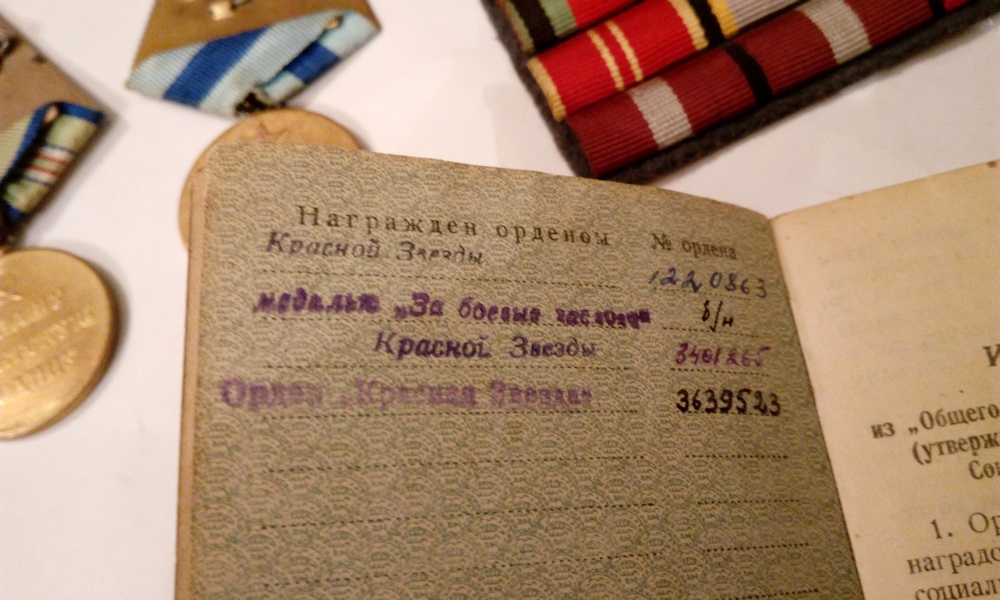 Награжден орденом № ордена
Красной Звезды 1220863
медалью „За боевые заслуги" б/н
Красной Звезды 3401265
Орден „Красная Звезда" 3639523
из „Общего
(утверж
1. Ор